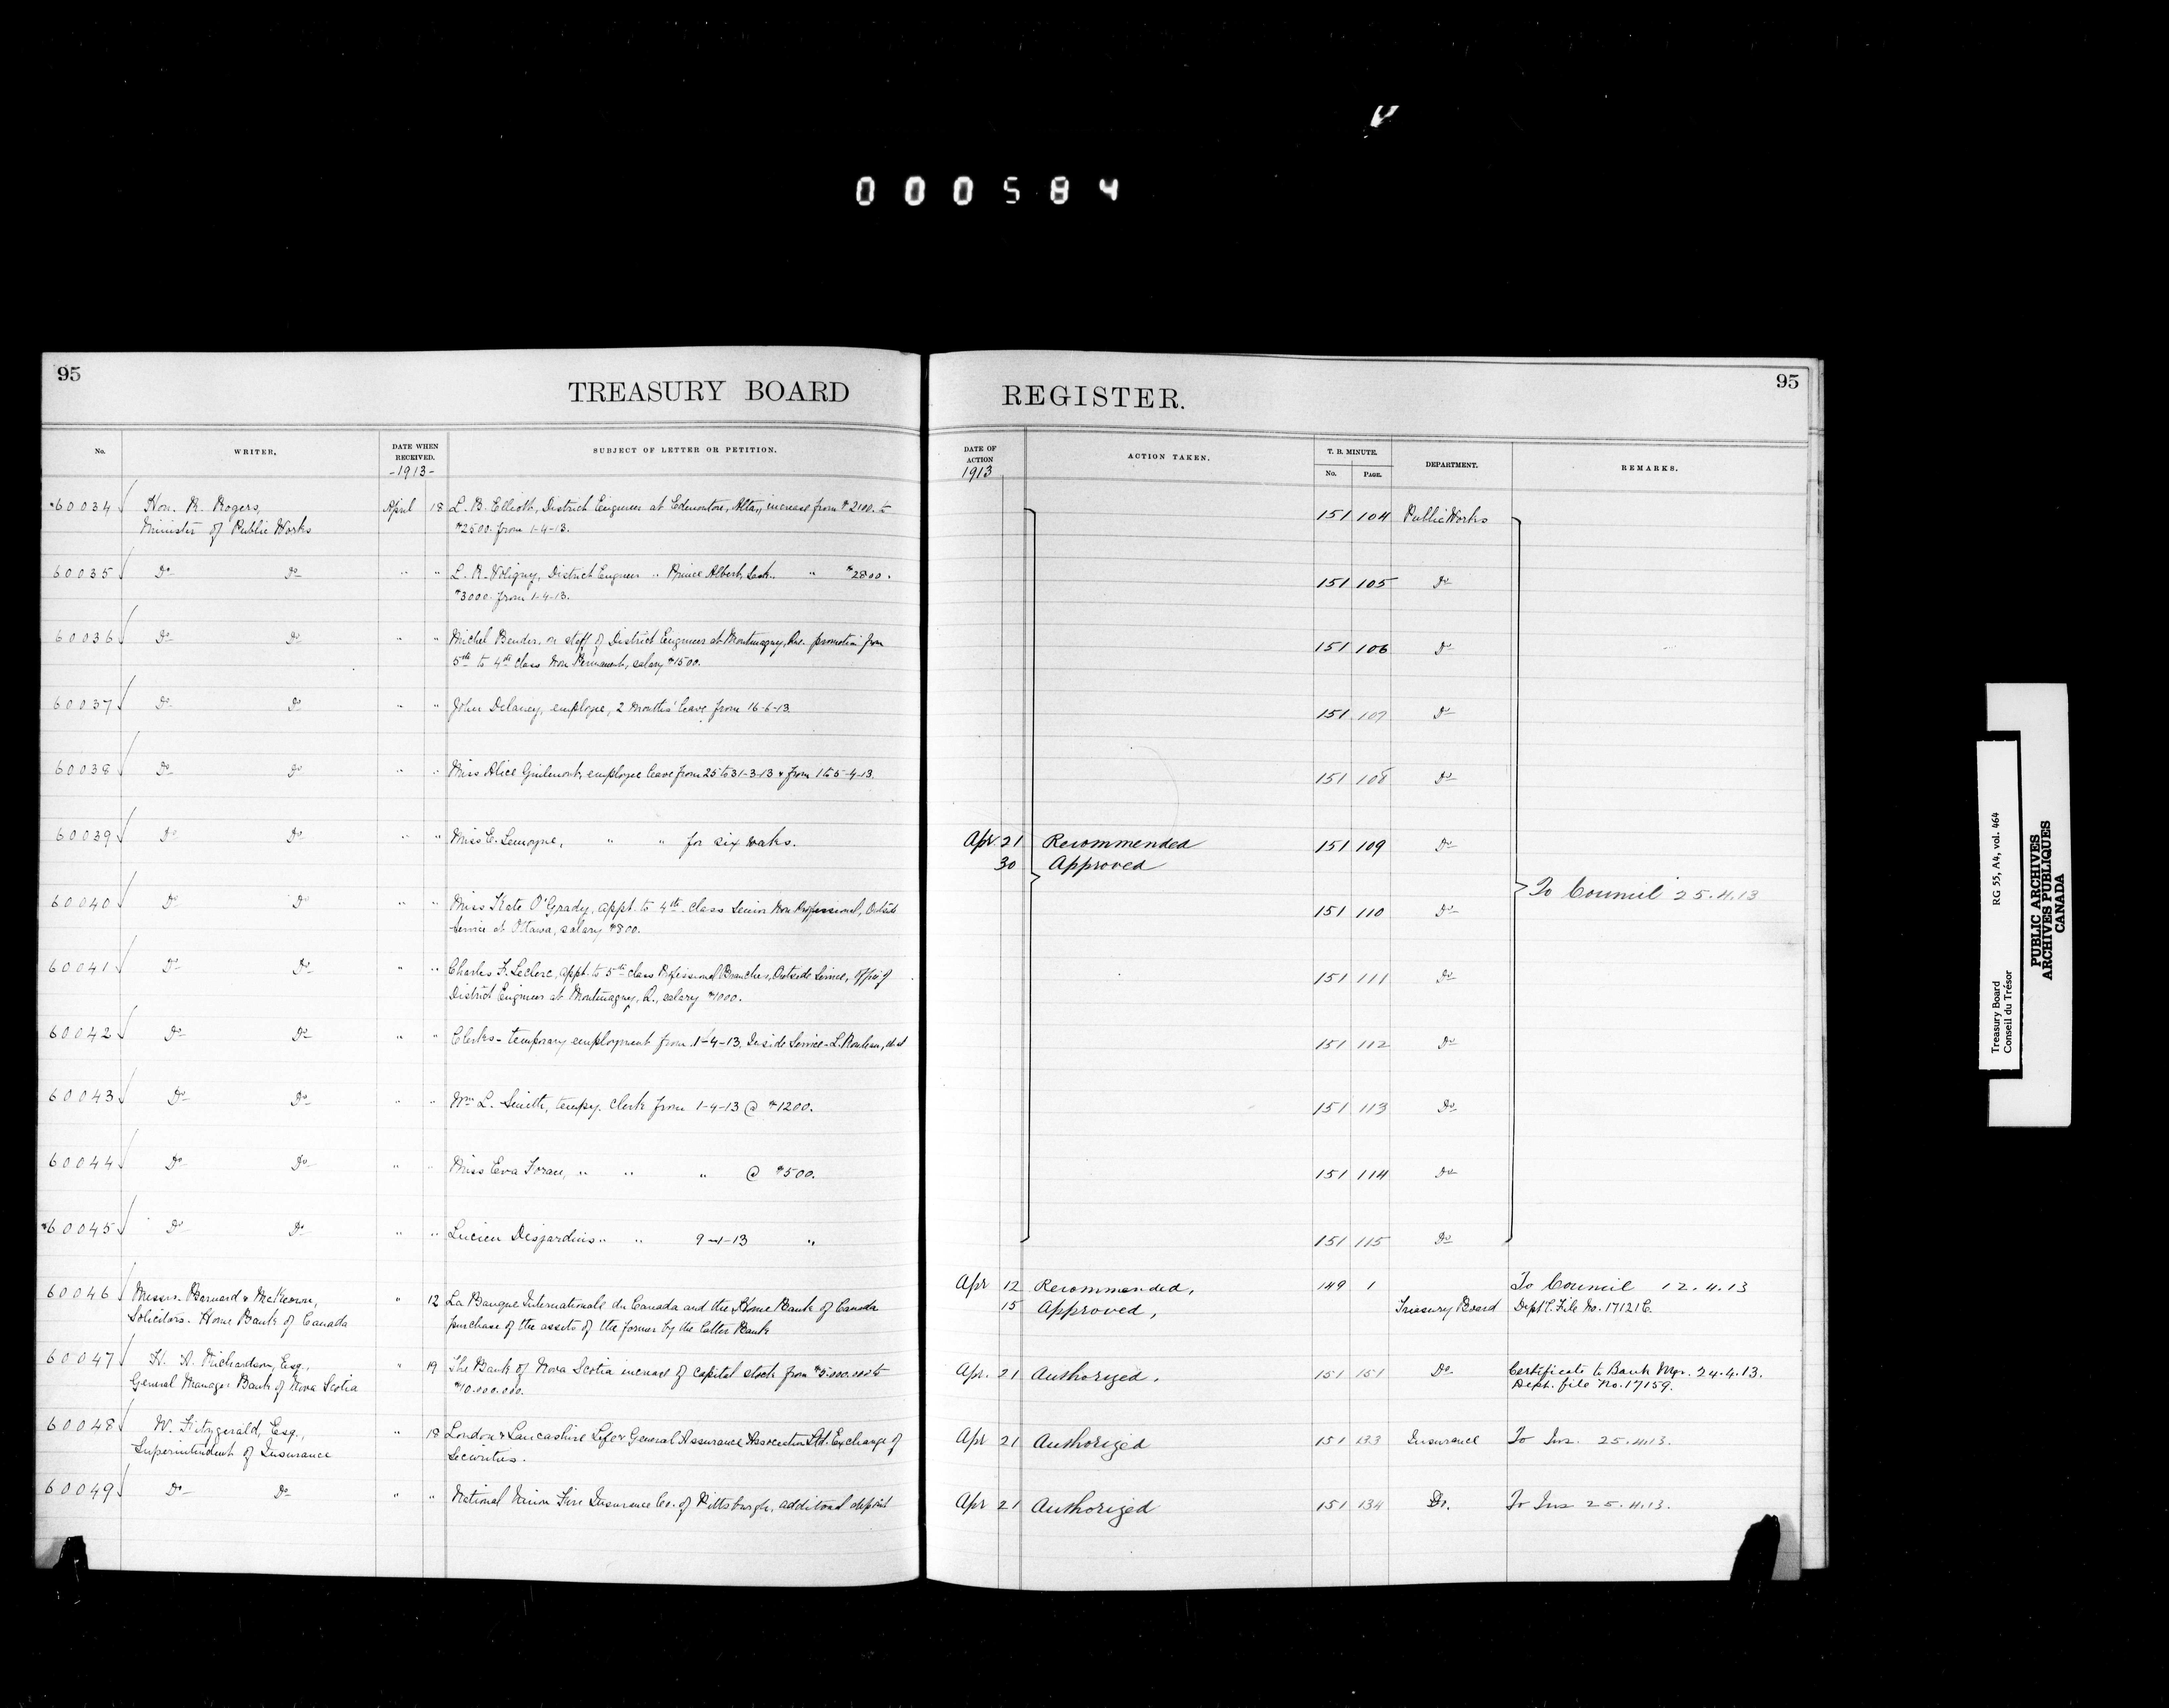 000584
95
TREASURY BOARD
REGISTER.
95
No.
WRITER,
DATE WHEN RECEIVED.
-1913-
SUBJECT OF LETTER OR PETITION.
DATE OF ACTION
1913
ACTION TAKEN.
T. B. MINUTE.
No.
PAGE.
DEPARTMENT.
REMARKS.
60034 Hon. R. Rogers, April 18 L. B. Elliott, District Engineer at Edmonton, Alta, increase from $2100. to 151 104 Public Works
Minister of Public Works $2500. from 1-4-13.
60035 Do Do " " L. R. Voligny, District Engineer " Prince Albert, Sask. " $2800. 151 105 Do
$3000. from 1-4-13.
60036 Do Do " " Michel Bender, on staff of District Engineer at Montmagny, Que. promotion from 151 106 Do
5th to 4th class Non Permanent, salary $1500.
60037 Do Do " " John Delaney, employee, 2 months' leave from 16-6-13. 151 107 Do
60038 Do Do " " Miss Alice employee leave from 25 to 31-3-13 & from 1 to 5-4-13. 151 108 Do
60039 Do Do " " Miss E. Lemoyne, " " for six weeks. Apr. 21 Recommended 151 109 Do
30 Approved
To Council 25.4.13
60040 Do Do " " Miss Kate O'Grady, appt. to 4th class Senior Non Professional, Outside 151 110 Do
Service at Ottawa, salary $800.
60041 Do Do " " Charles F. Leclerc, appt. to 5th class Professional Branches, Outside Service, Office of 151 111 Do
District Engineer at Montmagny, Q., salary $1000.
60042 Do Do " " Clerks - temporary employment from 1-4-13. Inside Service - L. et al 151 112 Do
60043 Do Do " " Wm L. Smith, tempy. clerk from 1-4-13 @ $1200. 151 113 Do
60044 Do Do " " Miss Eva " " " @ $500. 151 114 Do
60045 Do Do " " Lucien Desjardins " " 9-1-13 " 151 115 Do
60046 Messrs. Barnard & McKeown, " 12 La Banque Internationale du Canada and the Home Bank of Canada Apr 12 Recommended, 149 1 To Council 12.4.13
Solicitors. Home Bank of Canada purchase of the assets of the former by the latter Bank 15 Approved, Treasury Board Dept'l. File No. 17121C.
60047 H. A. Richardson, Esq., " 19 The Bank of Nova Scotia increase of capital stock from $5.000.000 to Apr. 21 Authorized. 151 151 Do Certificate to Bank Mgr. 24.4.13.
General Manager Bank of Nova Scotia $10.000.000. Dept. file No. 17159.
60048 W. Fitzgerald, Esq., " 18 London & Lancashire Life & General Assurance Association Ltd. Exchange of Apr 21 Authorized 151 133 Insurance To Ins. 25.4.13.
Superintendent of Insurance Securities.
60049 Do Do " " National Union Fire Insurance Co. of Pittsburgh, additional deposit Apr 21 Authorized 151 134 Do. To Ins 25.4.13.
Treasury Board RG 55, A4, vol. 464
Conseil du Trésor
PUBLIC ARCHIVES
ARCHIVES PUBLIQUES
CANADA